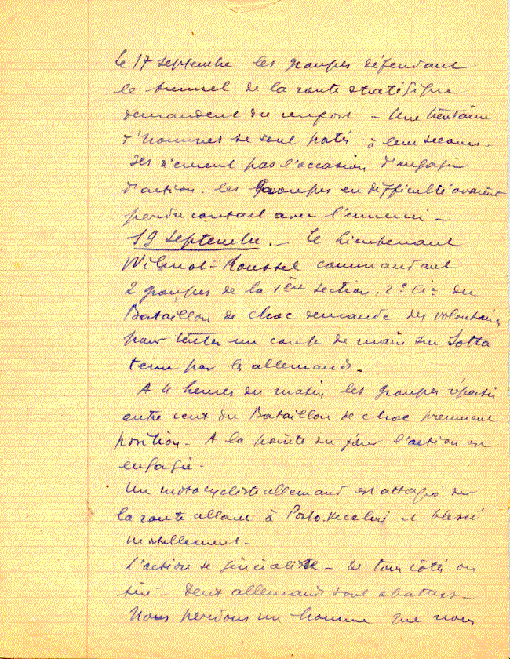 Le 17 septembre les groupes défendant
le tunnel de la route stratégique
demandent du renfort - Une trentaine
d'hommes se sont portés à leur secours.
Ils n'eurent pas l'occasion d'engager
d'action. les Groupes en difficulté avaient
perdu contact avec l'ennemi -
19 septembre. - Le Lieutenant
Roussel commandant
2 groupes de la 1ère section, 2e Cie du
Bataillon de choc demande des volontaires
pour tenter un coup de main sur Sotta
tenu par les allemands.
A 4 heures du matin, les groupes répartis
entre ceux du Bataillon de choc prennent
position - A la pointe du jour l'action est
engagée.
Un motocycliste allemand est attaqué sur
la route allant à Porto Vecchio et blessé
mortellement.
L'action se généralise - De tous côtés on
tire. Deux allemands sont abattus -
Nous perdons un homme que nous